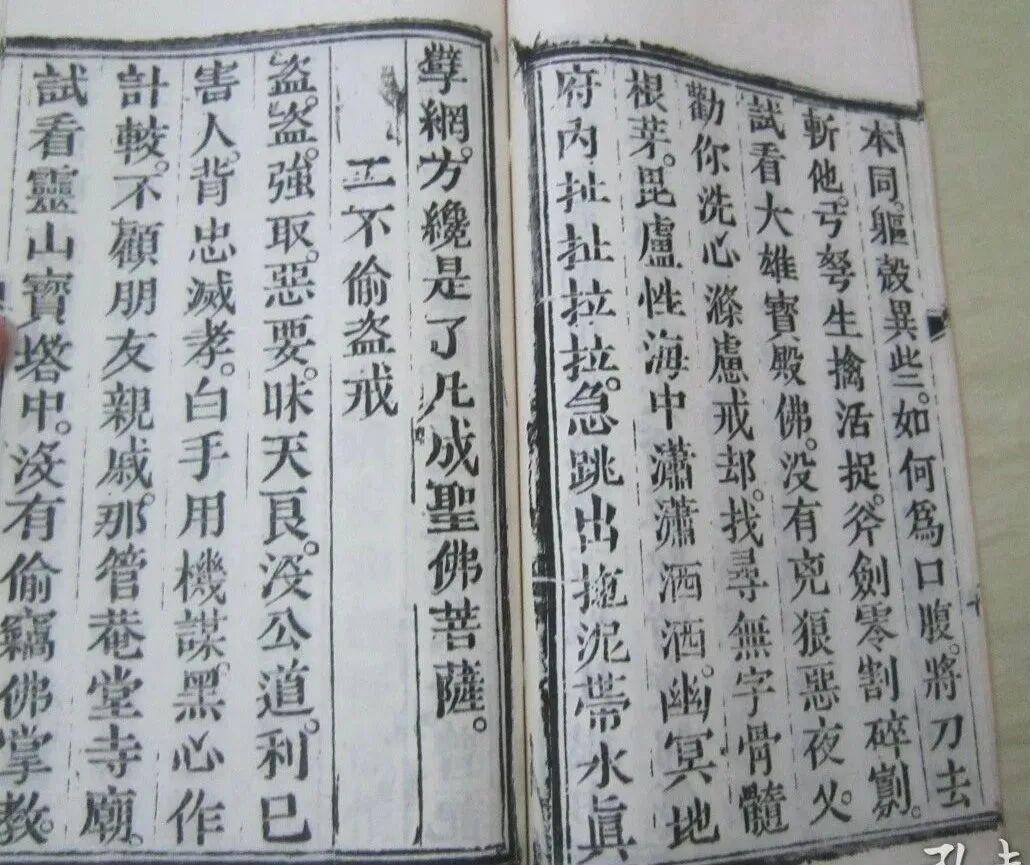 本同。軀殼異些。如何為口腹。將刀去
斬他。弓弩生擒活捉。斧劍零割碎劙。
試看大雄寶殿佛。没有兇狠惡夜乂。
勸你洗心滌慮戒却。找尋無字骨髓
根芽。毘盧性海中瀟瀟洒洒。幽冥地
府內扯扯拉拉。急跳出拖泥帶水眞
孽網。方纔是了凡成聖佛菩薩。
二不偷盜戒
盜。盜。強取。惡要。昧天良。没公道。利己
害人。背忠滅孝。白手用機謀。黑心作
計較。不顧朋友親戚。那管菴堂寺廟。
試看靈山寶塔中。沒有偷竊佛掌教。